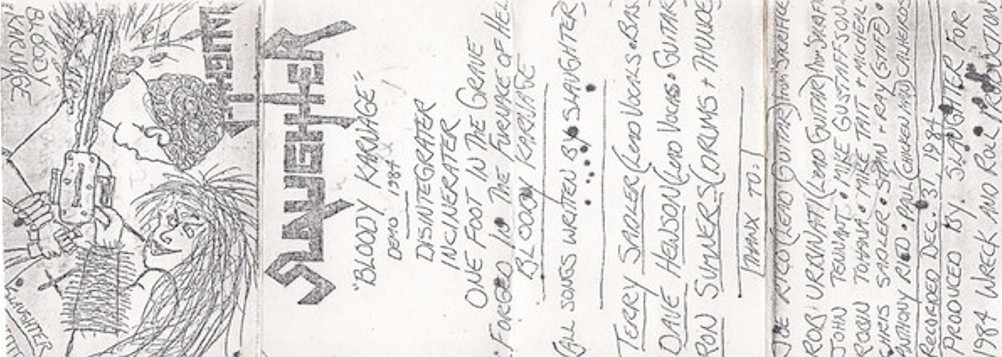 BLOODY
KARNAGE
SLAUGHTER
SLAUGHTER
SLAUGHTER
"BLOODY KARNAGE"
DEMO 1984
DISINTEGRATER
INCINERATER
ONE FOOT IN THE GRAVE
FORGED IN THE FURNACE OF HEL
BLOODY KARNAGE
ALL SONGS WRITTEN BY SLAUGHTER
TERRY SADLER (LEAD VOCALS • BAS
DAVE HEWSON (LEAD VOCALS • GUITAR
RON SUMNERS (DRUMS + THUNDE
THANX TO:
JOE RICO (LEAD GUITAR)
RORI URRANATI (LEAD GUITAR) from
JOHN TENNANT • MIKE GUSTAFSON
ROBIN TOHANA • MIKE TAIT +
CHRIS SADLER • STAN + RAY (STAFF) •
ANTHONY RIED • PAUL (CHICKEN MAN
RECORDED DEC. 31, 1984
PRODUCED BY SLAUGHTER FOR
1984 WRECK AND ROLL